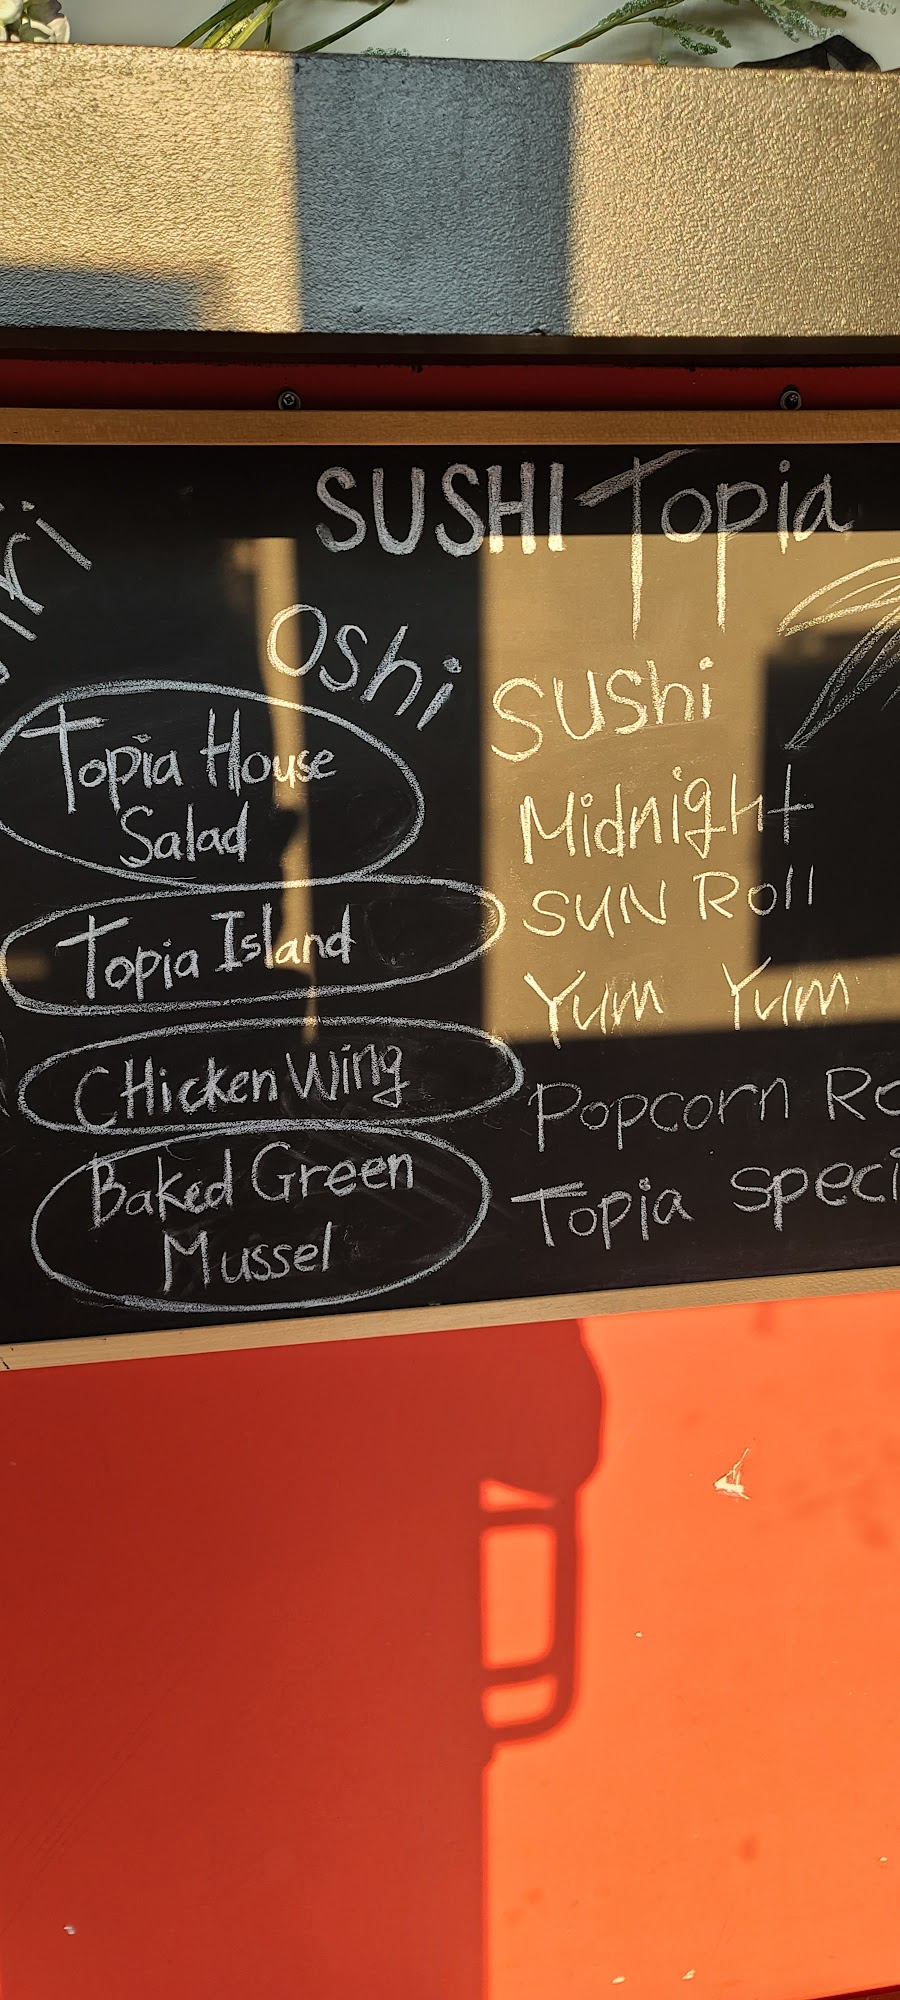 SUSHI Topia
Oshi
Sushi
Topia House
Salad
Topia Island
CHicken Wing
Baked Green
Mussel
Midnight
SUN Roll
Yum Yum
Popcorn
Topia